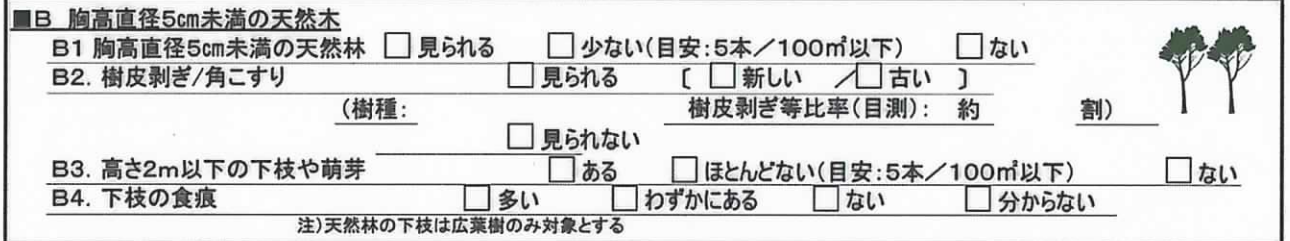 ■B 胸高直径5㎝未満の天然木
B1 胸高直径5㎝未満の天然林 □見られる □少ない(目安:5本/100㎡以下) □ない
B2. 樹皮剥ぎ/角こすり □見られる 〔 □新しい /□古い 〕
(樹種: 樹皮剥ぎ等比率(目測): 約 割)
□見られない
B3. 高さ2m以下の下枝や萌芽 □ある □ほとんどない(目安:5本/100㎡以下) □ない
B4. 下枝の食痕 □多い □わずかにある □ない □分からない
注)天然林の下枝は広葉樹のみ対象とする